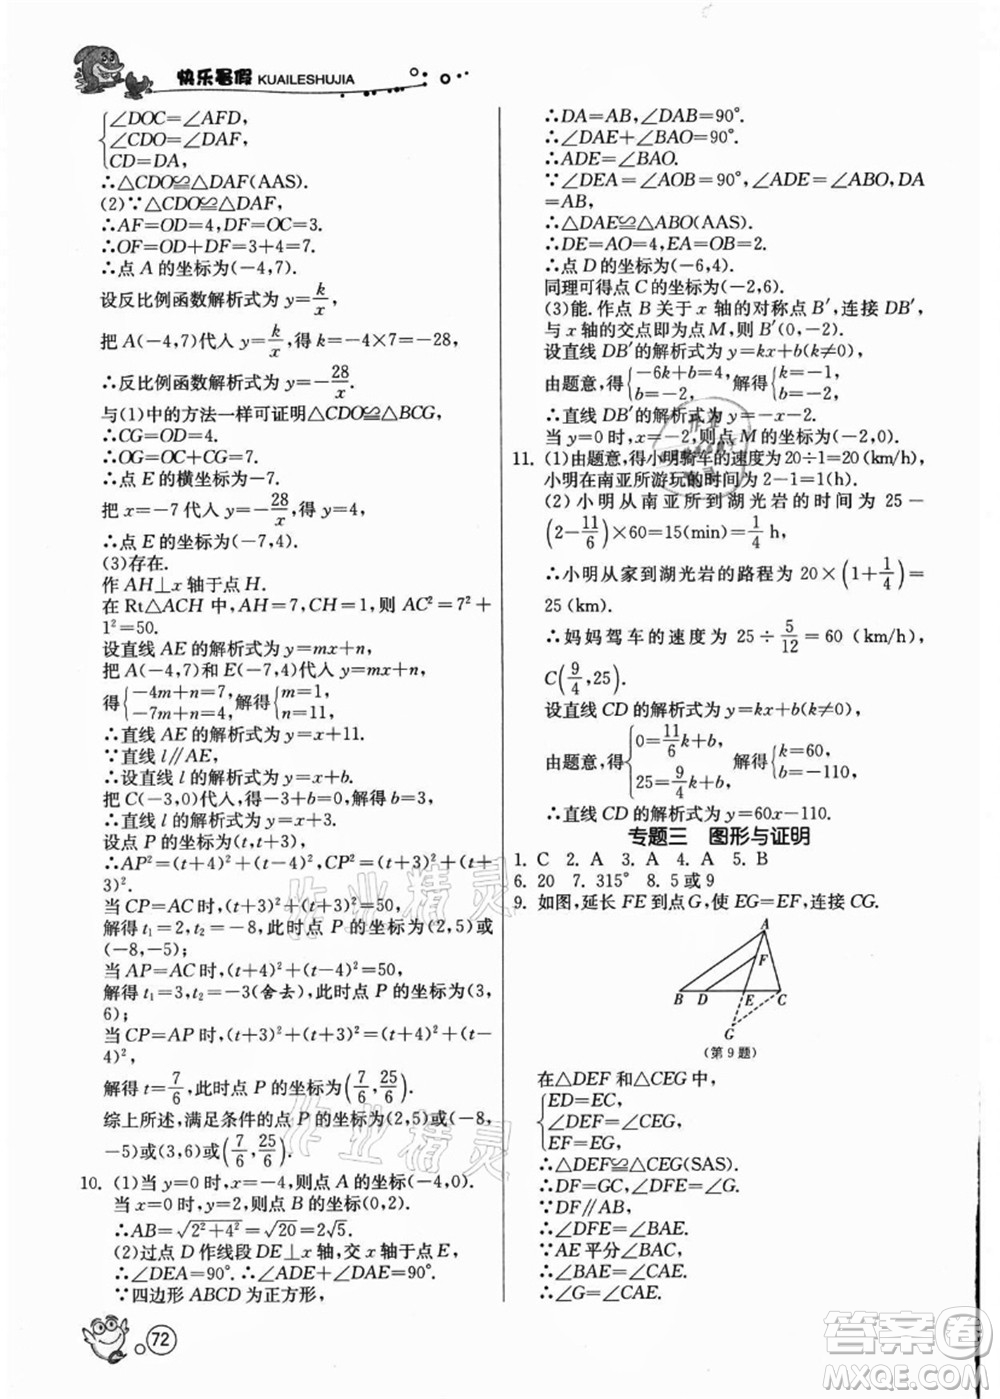 快乐暑假 KUAILESHUJIA
∠DOC=∠AFD,
∠CDO=∠DAF,
CD=DA,
∴△CDO≌△DAF(AAS).
(2)∵△CDO≌△DAF,
∴AF=OD=4,DF=OC=3.
∴OF=OD+DF=3+4=7.
∴点 A 的坐标为(-4,7).
设反比例函数解析式为 y=k/x,
把 A(-4,7)代入 y=k/x,得 k=-4×7=-28,
∴反比例函数解析式为 y=-28/x.
与(1)中的方法一样可证明△CDO≌△BCG,
∴CG=OD=4.
∴OG=OC+CG=7.
∴点 E 的横坐标为-7.
把 x=-7 代入 y=-28/x,得 y=4.
∴点 E 的坐标为(-7,4).
(3)存在.
作 AH⊥x 轴于点 H.
在 Rt△ACH 中,AH=7,CH=1,则 AC²=7²+
1²=50.
设直线 AE 的解析式为 y=mx+n,
把 A(-4,7)和 E(-7,4)代入 y=mx+n,
得{-4m+n=7, -7m+n=4, 解得{m=1, n=11.
∴直线 AE 的解析式为 y=x+11.
∵直线 l∥AE,
∴设直线 l 的解析式为 y=x+b.
把 C(-3,0)代入,得-3+b=0,解得 b=3.
∴直线 l 的解析式为 y=x+3.
设点 P 的坐标为(t,t+3),
∴AP²=(t+4)²+(t-4)²,CP²=(t+3)²+(t+
3)².
当 CP=AC 时,(t+3)²+(t+3)²=50,
解得 t₁=2,t₂=-8,此时点 P 的坐标为(2,5)或
(-8,-5);
当 AP=AC 时,(t+4)²+(t-4)²=50,
解得 t₁=3,t₂=-3(舍去),此时点 P 的坐标为(3,
6);
当 CP=AP 时,(t+3)²+(t+3)²=(t+4)²+(t-
4)²,
解得 t=7/6,此时点 P 的坐标为(7/6,25/6).
综上所述,满足条件的点 P 的坐标为(2,5)或(-8,
-5)或(3,6)或(7/6,25/6).
10. (1)当 y=0 时,x=-4,则点 A 的坐标(-4,0).
当 x=0 时,y=2,则点 B 的坐标(0,2).
∴AB=√(2²+4²)=√20=2√5.
(2)过点 D 作线段 DE⊥x 轴,交 x 轴于点 E,
∴∠DEA=90°.∴∠ADE+∠DAE=90°.
∵四边形 ABCD 为正方形,
72
∴DA=AB,∠DAB=90°.
∴∠DAE+∠BAO=90°.
∴∠ADE=∠BAO.
∵∠DEA=∠AOB=90°,∠ADE=∠BAO,DA
=AB,
∴△DAE≌△ABO(AAS).
∴DE=AO=4,EA=OB=2.
∴点 D 的坐标为(-6,4).
同理可得点 C 的坐标为(-2,6).
(3)能.作点 B 关于 x 轴的对称点 B′,连接 DB′,
与 x 轴的交点即为点 M,则 B′(0,-2).
设直线 DB′的解析式为 y=kx+b(k≠0),
由题意,得{-6k+b=4, b=-2, 解得{k=-1, b=-2,
∴直线 DB′的解析式为 y=-x-2.
当 y=0 时,x=-2,则点 M 的坐标为(-2,0).
11. (1)由题意,得小明骑车的速度为 20÷1=20 (km/h),
小明在南亚所游玩的时间为 2-1=1(h).
(2) 小明从南亚所到湖光岩的时间为 25-
(2-11/6)×60=15(min)=1/4 h,
∴小明从家到湖光岩的路程为 20×(1+1/4)=
25(km).
∴妈妈驾车的速度为 25÷5/12=60 (km/h),
C(9/4,25).
设直线 CD 的解析式为 y=kx+b(k≠0),
由题意,得{0=11/6k+b, 25=9/4k+b, 解得{k=60, b=-110,
∴直线 CD 的解析式为 y=60x-110.
专题三 图形与证明
1. C 2. A 3. A 4. A 5. B
6. 20 7. 315° 8. 5 或 9
9. 如图,延长 FE 到点 G,使 EG=EF,连接 CG.
A
F
B D E C
G
(第 9 题)
在△DEF 和△CEG 中,
ED=EC,
∠DEF=∠CEG,
EF=EG,
∴△DEF≌△CEG(SAS).
∴DF=GC,∠DFE=∠G.
∵DF∥AB,
∴∠DFE=∠BAE.
∵AE 平分∠BAC,
∴∠BAE=∠CAE.
∴∠G=∠CAE.
作业精灵
作业精灵
答案卷
MXQE.COM